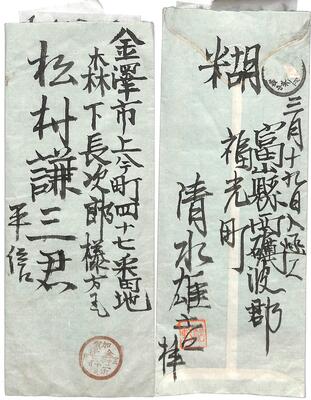 金澤市上今町四十七番地
森下長次郎様方ニ
松村謙三君
平信
糊
三月十九日
富山縣西礪波郡
福光町
清水雄吉拝